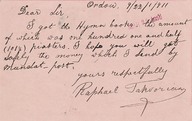 Ordou, 1/23/1911
Dear Sir
I got the Hymn books, the amount
of which was one hundred one and half
(101½) piasters. I hope you will
supply the money which I send by
mandat-post.
yours respectfully
Raphael Takvorian